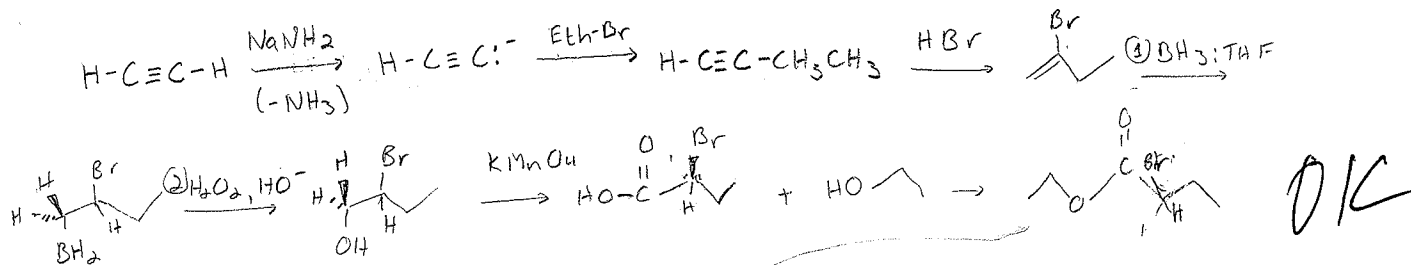 H-C≡C-H NaNH2 (-NH3) H-C≡C:⁻ Eth-Br H-C≡C-CH3CH3 HBr Br ① BH3:THF
H H Br H BH2 ② H2O2, HO⁻ H H Br H OH KMnO4 O HO-C Br H + HO O C O Br H OK